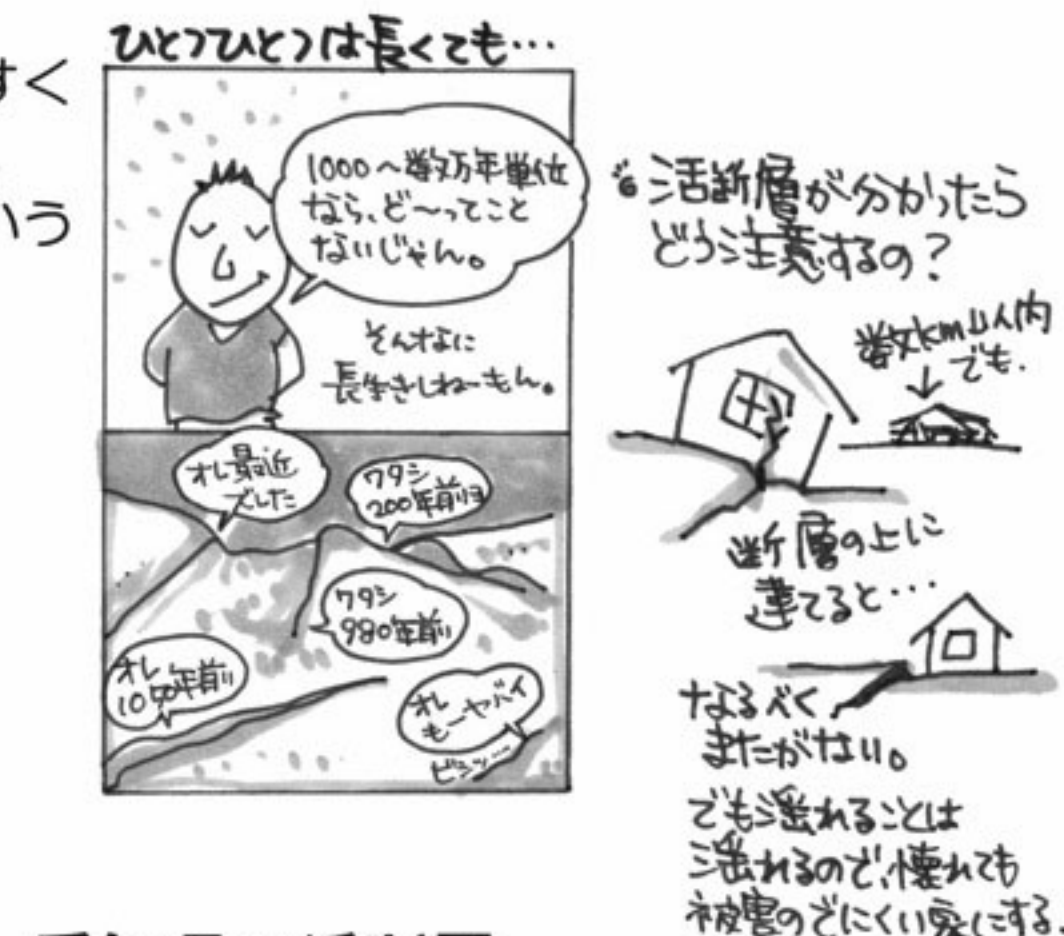 すく
いう
ひとつひとつは長くても…
1000〜数万年単位
なら、ど〜ってこと
ないじゃん。
そんなに
長生きしねーもん。
オレ最近
ズレた
ワタシ
200年前ヨ
ワタシ
980年前
オレ
1050年前
オレ
もーヤバイ
ピシッ…
活断層が分かったら
どう注意するの？
数km以内
でも.
↓
断層の上に
建てると…
なるべく
またがない。
でも揺れることは
揺れるので、壊れても
被害のでにくい家にする。